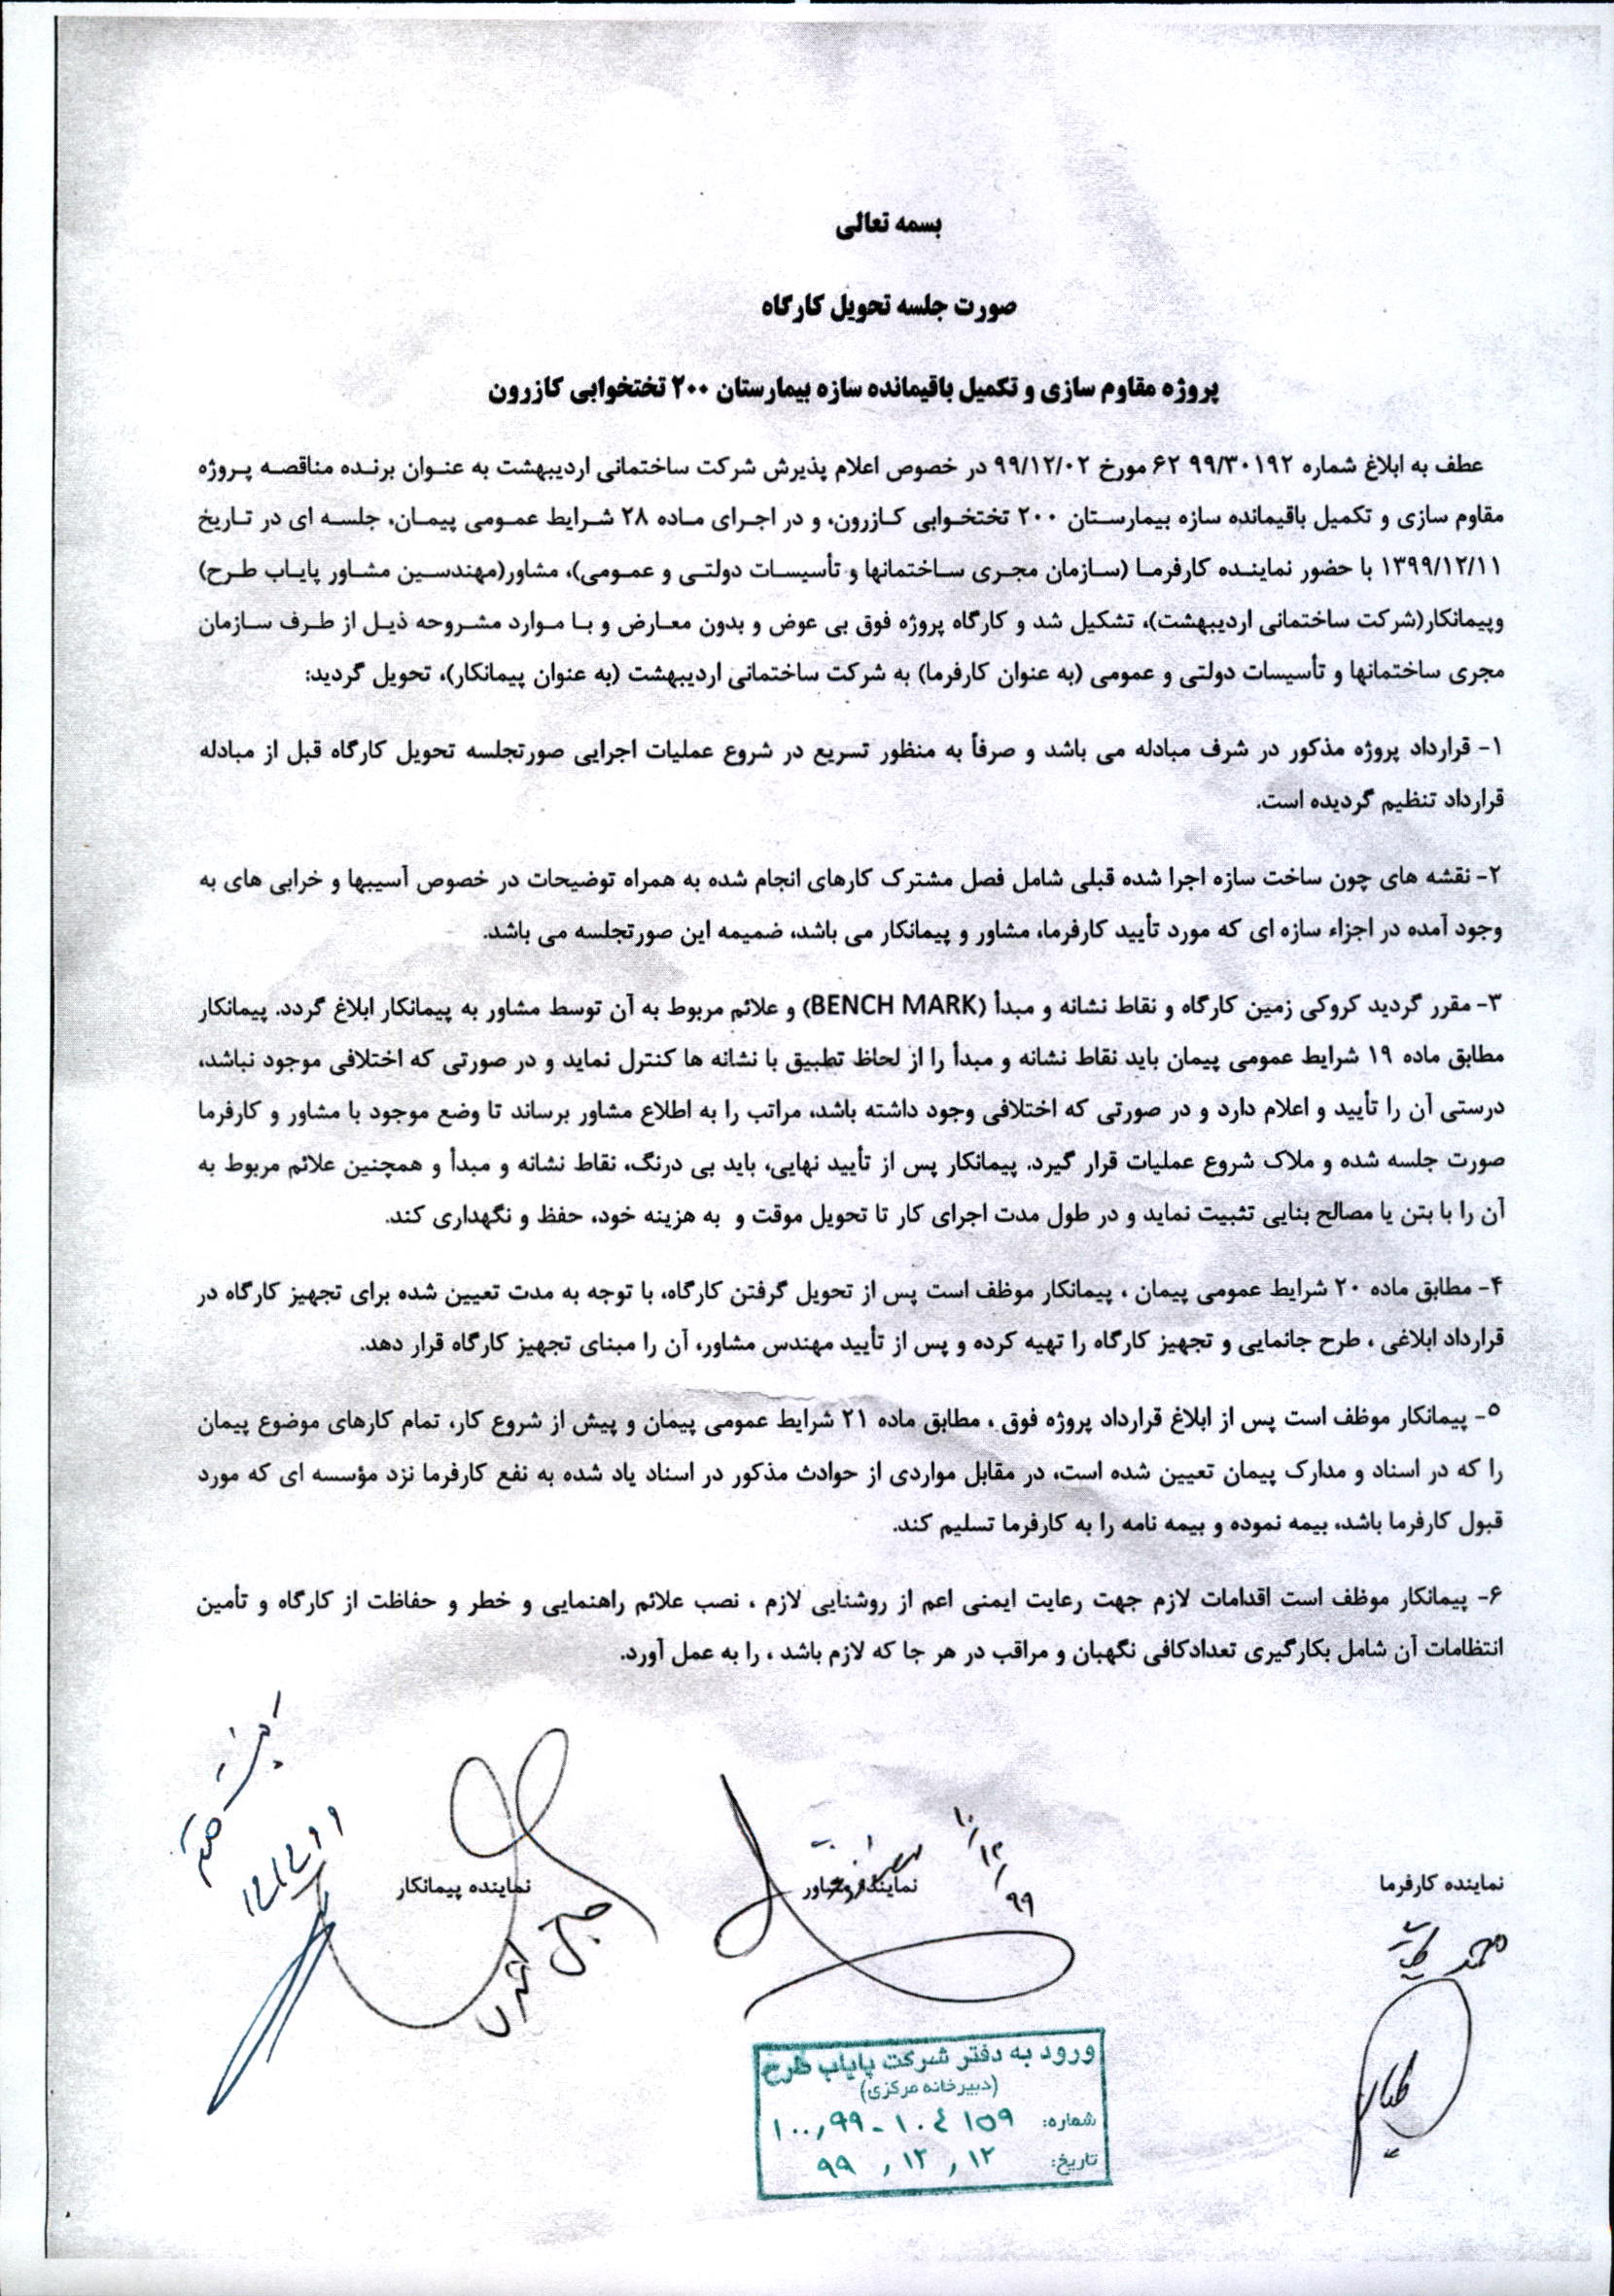 بسمه تعالی
صورت جلسه تحویل کارگاه
پروژه مقاوم سازی و تکمیل باقیمانده سازه بیمارستان ۲۰۰ تختخوابی کازرون
عطف به ابلاغ شماره ۹۹/۳۰۱۹۲ ۶۲ مورخ ۹۹/۱۲/۰۲ در خصوص اعلام پذیرش شرکت ساختمانی اردیبهشت به عنوان برنده مناقصه پروژه
مقاوم سازی و تکمیل باقیمانده سازه بیمارستان ۲۰۰ تختخوابی کازرون، و در اجرای ماده ۲۸ شرایط عمومی پیمان، جلسه ای در تاریخ
۱۳۹۹/۱۲/۱۱ با حضور نماینده کارفرما (سازمان مجری ساختمانها و تأسیسات دولتی و عمومی)، مشاور(مهندسین مشاور پایاب طرح)
وپیمانکار(شرکت ساختمانی اردیبهشت)، تشکیل شد و کارگاه پروژه فوق بی عوض و بدون معارض و با موارد مشروحه ذیل از طرف سازمان
مجری ساختمانها و تأسیسات دولتی و عمومی (به عنوان کارفرما) به شرکت ساختمانی اردیبهشت (به عنوان پیمانکار)، تحویل گردید:
۱- قرارداد پروژه مذکور در شرف مبادله می باشد و صرفاً به منظور تسریع در شروع عملیات اجرایی صورتجلسه تحویل کارگاه قبل از مبادله
قرارداد تنظیم گردیده است.
۲- نقشه های چون ساخت سازه اجرا شده قبلی شامل فصل مشترک کارهای انجام شده به همراه توضیحات در خصوص آسیبها و خرابی های به
وجود آمده در اجزاء سازه ای که مورد تأیید کارفرما، مشاور و پیمانکار می باشد، ضمیمه این صورتجلسه می باشد.
۳- مقرر گردید کروکی زمین کارگاه و نقاط نشانه و مبدأ (BENCH MARK) و علائم مربوط به آن توسط مشاور به پیمانکار ابلاغ گردد. پیمانکار
مطابق ماده ۱۹ شرایط عمومی پیمان باید نقاط نشانه و مبدأ را از لحاظ تطبیق با نشانه ها کنترل نماید و در صورتی که اختلافی موجود نباشد،
درستی آن را تأیید و اعلام دارد و در صورتی که اختلافی وجود داشته باشد، مراتب را به اطلاع مشاور برساند تا وضع موجود با مشاور و کارفرما
صورت جلسه شده و ملاک شروع عملیات قرار گیرد. پیمانکار پس از تأیید نهایی، باید بی درنگ، نقاط نشانه و مبدأ و همچنین علائم مربوط به
آن را با بتن یا مصالح بنایی تثبیت نماید و در طول مدت اجرای کار تا تحویل موقت و به هزینه خود، حفظ و نگهداری کند.
۴- مطابق ماده ۲۰ شرایط عمومی پیمان ، پیمانکار موظف است پس از تحویل گرفتن کارگاه، با توجه به مدت تعیین شده برای تجهیز کارگاه در
قرارداد ابلاغی ، طرح جانمایی و تجهیز کارگاه را تهیه کرده و پس از تأیید مهندس مشاور، آن را مبنای تجهیز کارگاه قرار دهد.
۵- پیمانکار موظف است پس از ابلاغ قرارداد پروژه فوق ، مطابق ماده ۲۱ شرایط عمومی پیمان و پیش از شروع کار، تمام کارهای موضوع پیمان
را که در اسناد و مدارک پیمان تعیین شده است، در مقابل مواردی از حوادث مذکور در اسناد یاد شده به نفع کارفرما نزد مؤسسه ای که مورد
قبول کارفرما باشد، بیمه نموده و بیمه نامه را به کارفرما تسلیم کند.
۶- پیمانکار موظف است اقدامات لازم جهت رعایت ایمنی اعم از روشنایی لازم ، نصب علائم راهنمایی و خطر و حفاظت از کارگاه و تأمین
انتظامات آن شامل بکارگیری تعدادکافی نگهبان و مراقب در هر جا که لازم باشد ، را به عمل آورد.
نماینده کارفرما
نماینده مشاور
نماینده پیمانکار
محمد
۹۹/۱۲/۱۰
۹۹/۱۲/۱۲
ورود به دفتر شرکت پایاب طرح
(دبیرخانه مرکزی)
شماره: ۱۰۰٫۹۹-۱۰۴۱۵۹
تاریخ: ۹۹٫۱۲٫۱۲